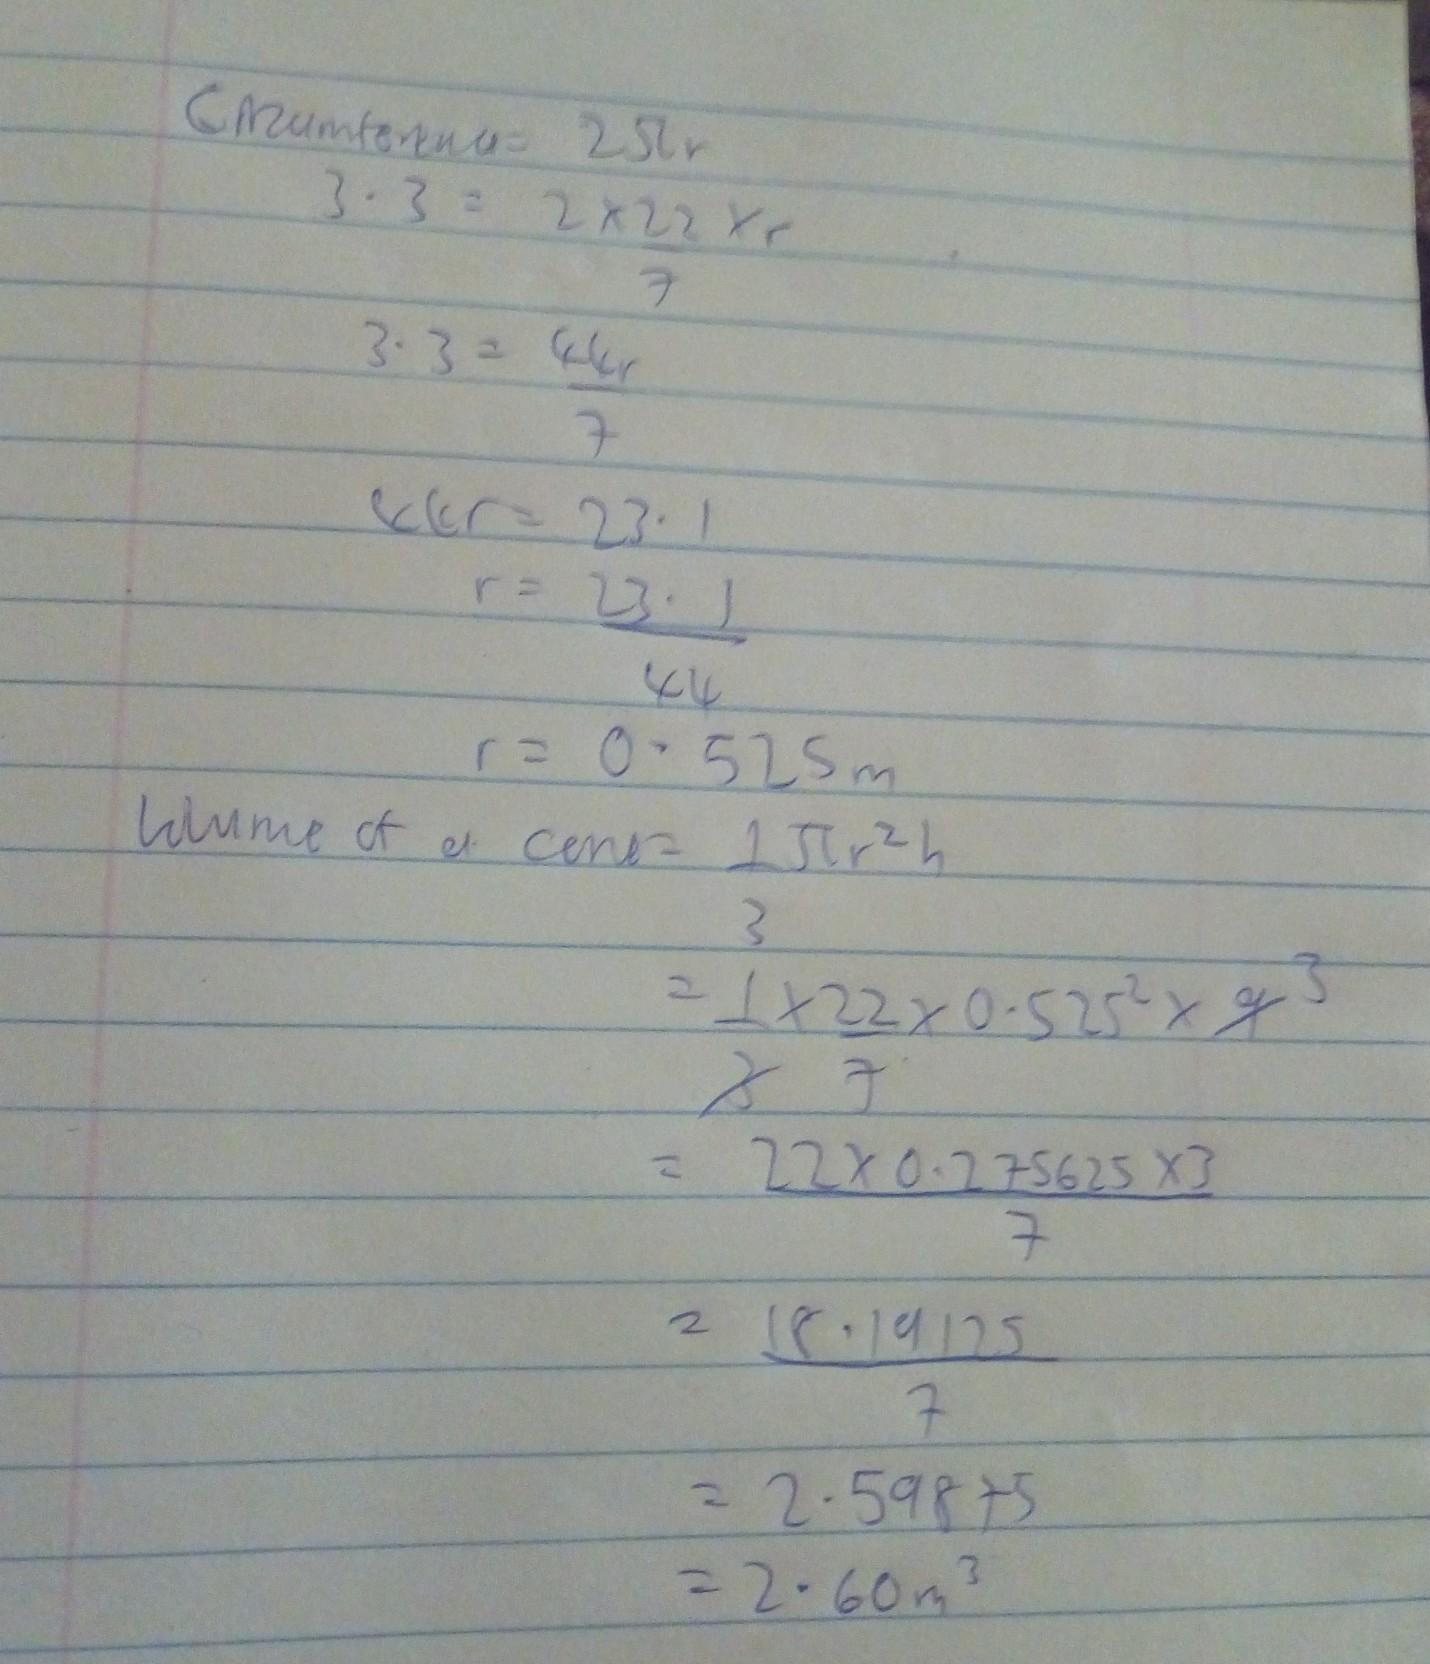 Circumference = 2πr
3.3 = 2 x 22 x r
7
3.3 = 44r
7
44r = 23.1
r = 23.1
44
r = 0.525m
Volume of a cone = 1πr²h
3
= 1 x 22 x 0.525² x 9 3
3 7
= 22 x 0.275625 x 3
7
= 18.19125
7
= 2.59875
= 2.60m³